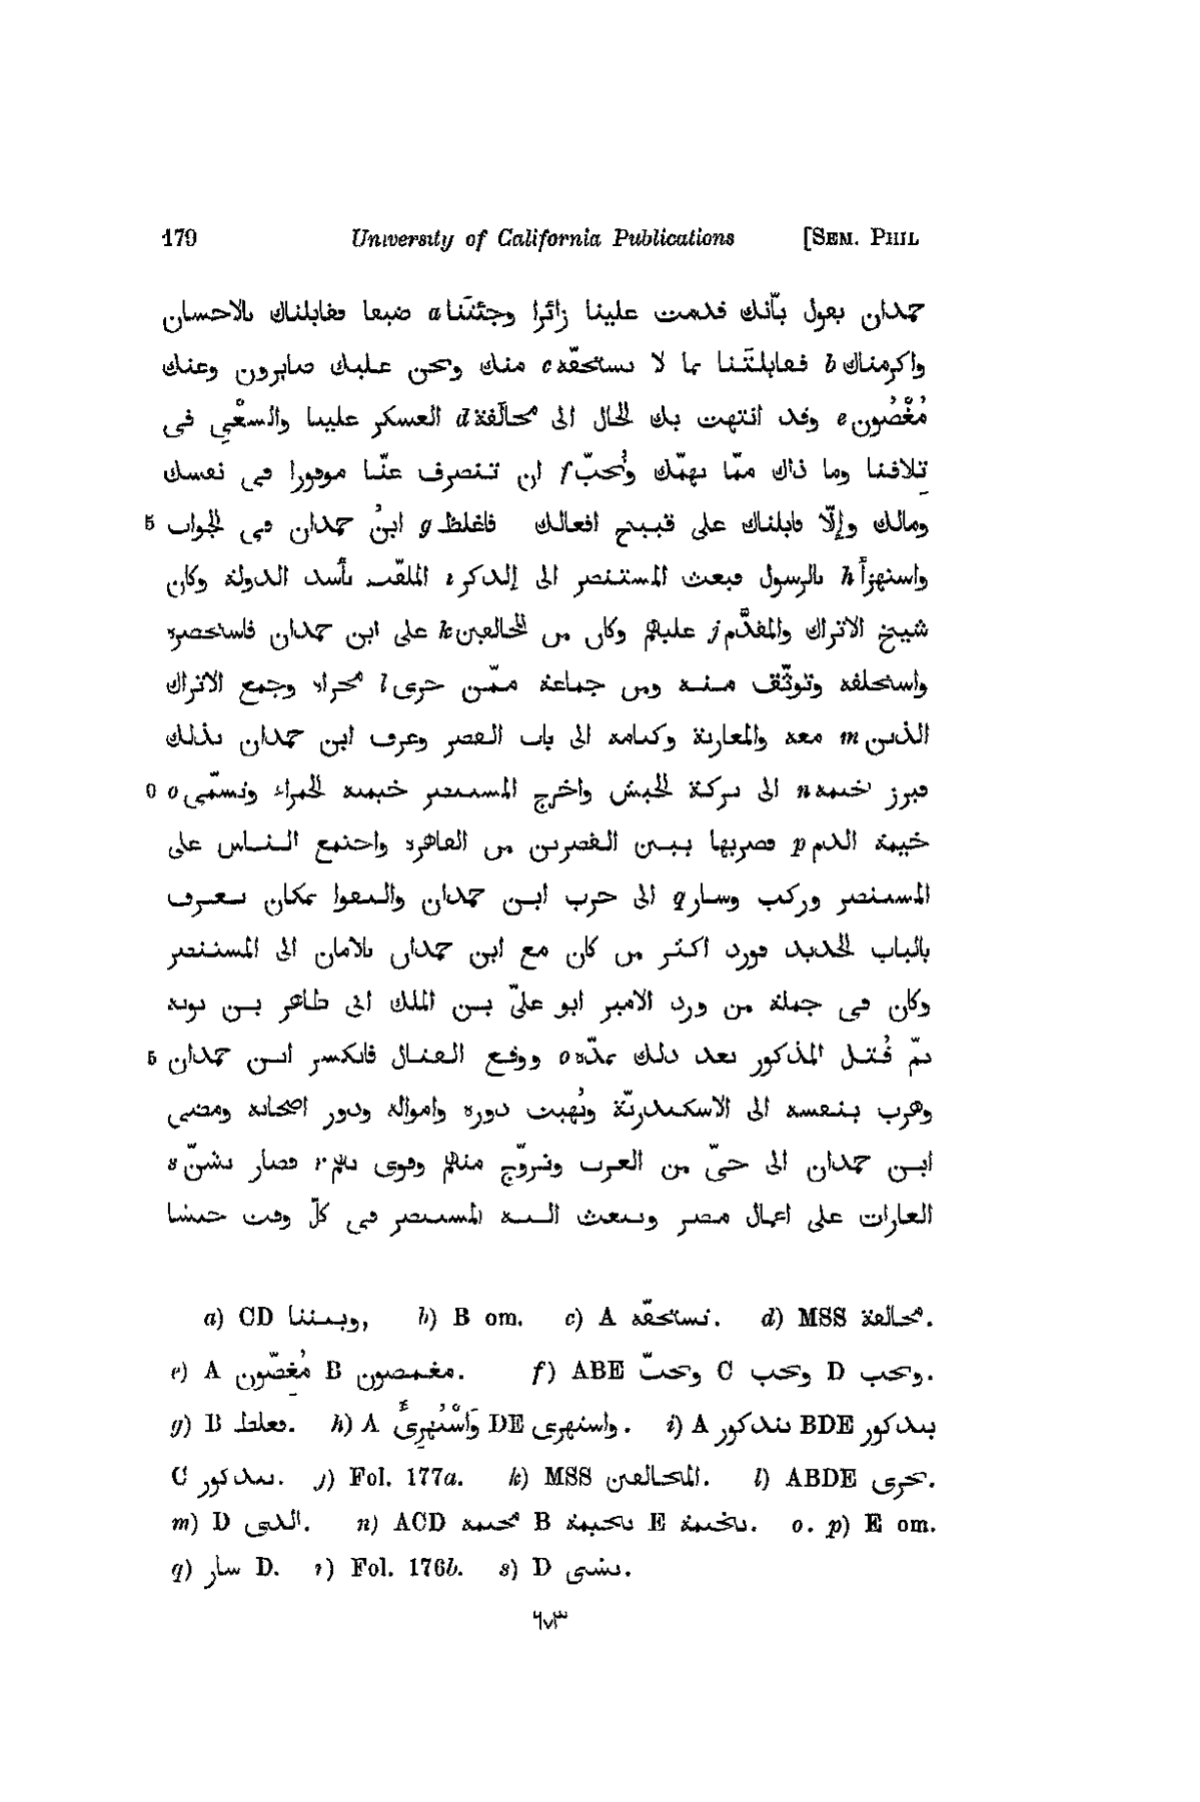 170 University of California Publications [SEM. PHIL
حمدان يقول بأنّك قدمت علينا زائرا وجئتَنا a ضيفا فقابلناك بالاحسان
واكرمناك b فقابلتَنا بما لا نستحقّه c منك ونحن عليك صابرون وعنك
مُغْضُون e وقد انتهت بك الحال الى محالَفة d العسكر علينا والسعْي فى
تلافنا وما ذاك ممّا نهمّك ونُحبّ f ان تنصرف عنّا موفورا فى نفسك
5 ومالك وإلّا قابلناك على قبيح افعالك فاغلظ g ابنُ حمدان فى الجواب
واستهزأ h بالرسول فبعث المستنصر الى إلدكز i الملقّب بأسد الدولة وكان
شيخ الاتراك والمقدَّم j عليهم وكان من المخالفين k على ابن حمدان فاستحضره
واستحلفه وتوثّق منه ومن جماعة ممّن جرى l مجراه وجمع الاتراك
الذين m معه والمغاربة وكتامه الى باب القصر وعرف ابن حمدان بذلك
0 فبرز بخيمه n الى بركة الحبش واخرج المستنصر خيمته الحمراء وتسمّى o
خيمة الدم p فضربها بين القصرين من القاهرة واجتمع الناس على
المستنصر وركب وسار q الى حرب ابن حمدان والتقوا بمكان يعرف
بالباب الجديد فورد اكثر من كان مع ابن حمدان بالامان الى المستنصر
وكان فى جملة من ورد الامير ابو علىّ بن الملك ابى طاهر بن بويه
5 ثمّ قُتل المذكور بعد ذلك بمدّه o ووقع القتال فانكسر ابن حمدان
وهرب بنفسه الى الاسكندريّة ونُهبت دوره وامواله ودور اصحابه ومضى
ابن حمدان الى حىّ من العرب وتزوّج منهم وقوى بهم r فصار يشنّ s
الغارات على اعمال مصر ويبعث اليه المستنصر فى كلّ وقت جيشا
a) CD وبيننا, b) B om. c) A نستحقّه. d) MSS محالفة.
e) A مُغِضّون B مغمضون. f) ABE ونحبّ C ونحب D ونحب.
g) B فغلظ. h) A وَاسْتُهزِىٌٔ DE واستهزى. i) A بندكور BDE ببدكور
C ببدكور. j) Fol. 177a. k) MSS المخالفين. l) ABDE يجرى.
m) D الذى. n) ACD بخيمه B بخيمة E بخيمة. o. p) E om.
q) سار D. r) Fol. 176b. s) D بشى.
٦٧٣